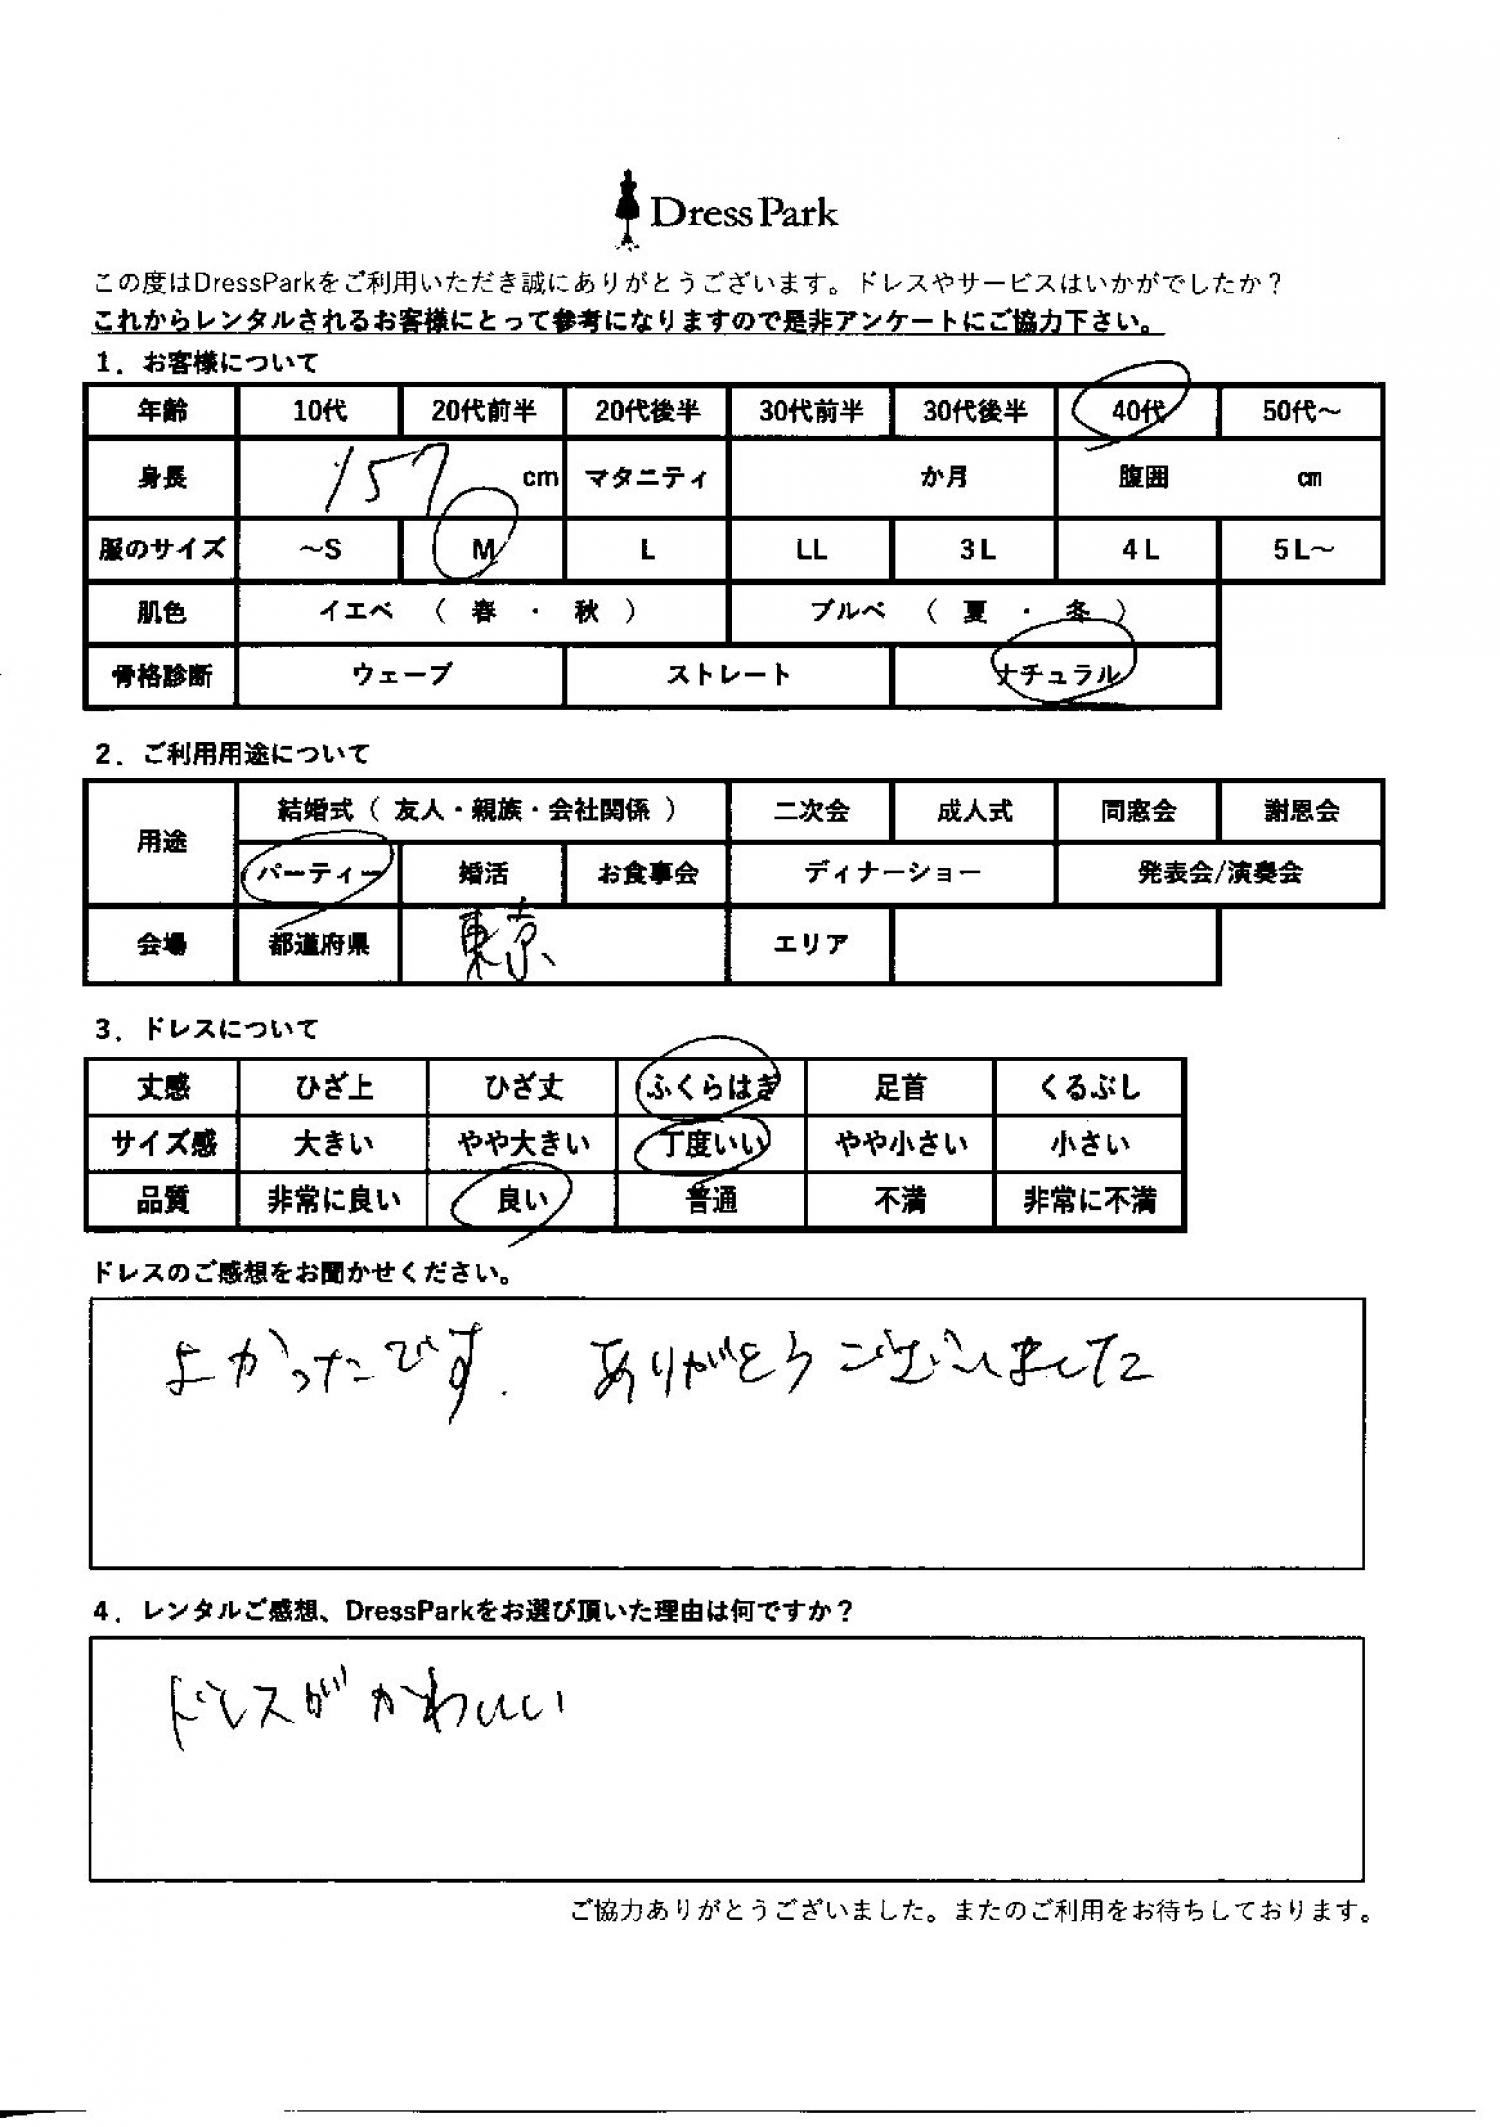 DressPark
この度はDressParkをご利用いただき誠にありがとうございます。ドレスやサービスはいかがでしたか？
これからレンタルされるお客様にとって参考になりますので是非アンケートにご協力下さい。
1．お客様について
年齢 10代 20代前半 20代後半 30代前半 30代後半 40代 50代～
身長 157 cm マタニティ か月 腹囲 ㎝
服のサイズ ～S M L LL 3L 4L 5L～
肌色 イエベ （ 春 ・ 秋 ） ブルベ （ 夏 ・ 冬 ）
骨格診断 ウェーブ ストレート ナチュラル
2．ご利用用途について
用途 結婚式（ 友人・親族・会社関係 ） 二次会 成人式 同窓会 謝恩会
パーティー 婚活 お食事会 ディナーショー 発表会/演奏会
会場 都道府県 東京 エリア
3．ドレスについて
丈感 ひざ上 ひざ丈 ふくらはぎ 足首 くるぶし
サイズ感 大きい やや大きい 丁度いい やや小さい 小さい
品質 非常に良い 良い 普通 不満 非常に不満
ドレスのご感想をお聞かせください。
よかったです. ありがとうございました
4．レンタルご感想、DressParkをお選び頂いた理由は何ですか？
ドレスがかわいい
ご協力ありがとうございました。またのご利用をお待ちしております。